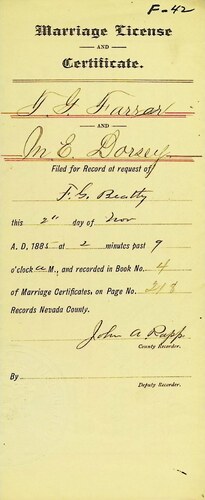 F-42
Marriage License
AND
Certificate.
T. G. Farrar
AND
M. E. Dorsey
Filed for Record at request of
F. G. Beatty
this 2" day of Nov
A. D. 1885 at 2 minutes past 9
o'clock a M., and recorded in Book No. 4
of Marriage Certificates, on Page No. 218
Records Nevada County.
John A Rapp
County Recorder.
By
Deputy Recorder.